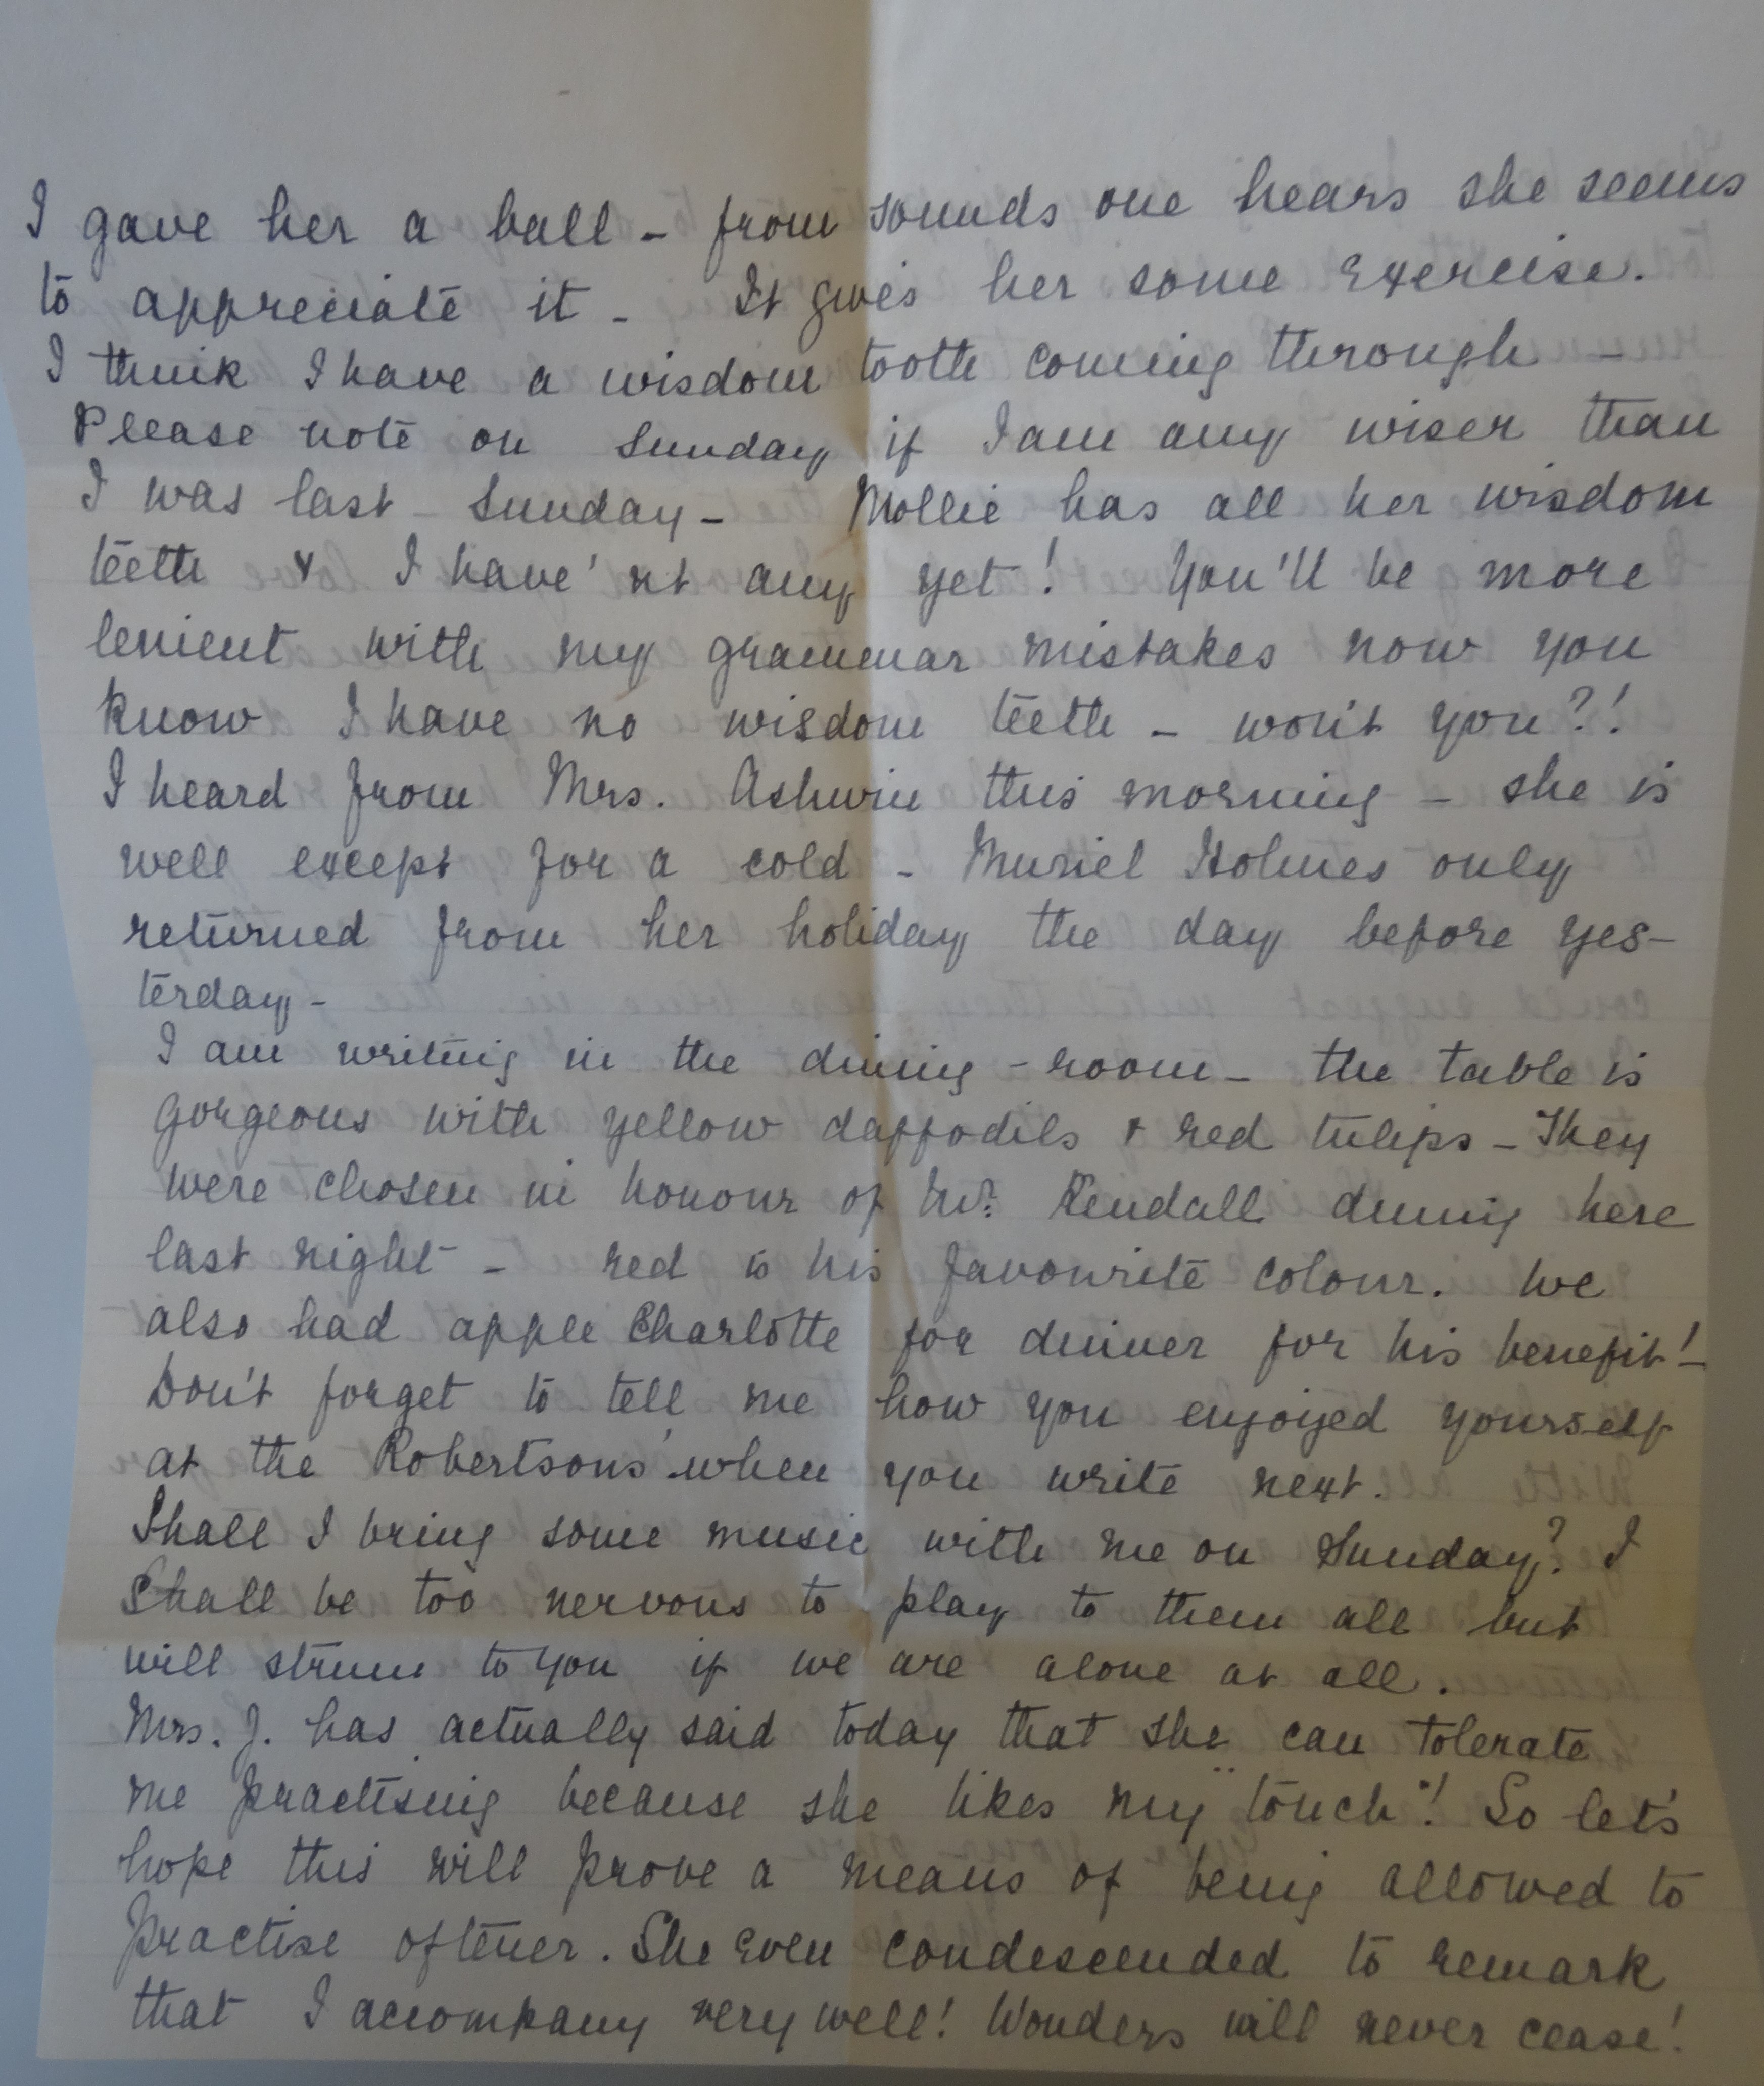 I gave her a ball - from sounds one hears she seems
to appreciate it - It gives her some exercise.
I think I have a wisdom tooth coming through -
Please note on Sunday if I am any wiser than
I was last Sunday - Mollie has all her wisdom
teeth & I have'nt any yet! You'll be more
lenient with my grammar mistakes now you
know I have no wisdom teeth - won't you?!
I heard from Mrs. Ashwin this morning - she is
well except for a cold - Muriel Holmes only
returned from her holiday the day before yes-
terday -
I am writing in the dining-room - the table is
gorgeous with yellow daffodils & red tulips - They
were chosen in honour of Mr. Kendall dining here
last night - red is his favourite colour. We
also had apple Charlotte for dinner for his benefit! -
Don't forget to tell me how you enjoyed yourself
at the Robertsons' when you write next.
Shall I bring some music with me on Sunday? I
shall be too nervous to play to them all but
will strum to you if we are alone at all.
Mrs. J. has actually said today that she can tolerate
me practising because she likes my "touch"! So let's
hope this will prove a means of being allowed to
practise oftener. She even condescended to remark
that I accompany very well! Wonders will never cease!